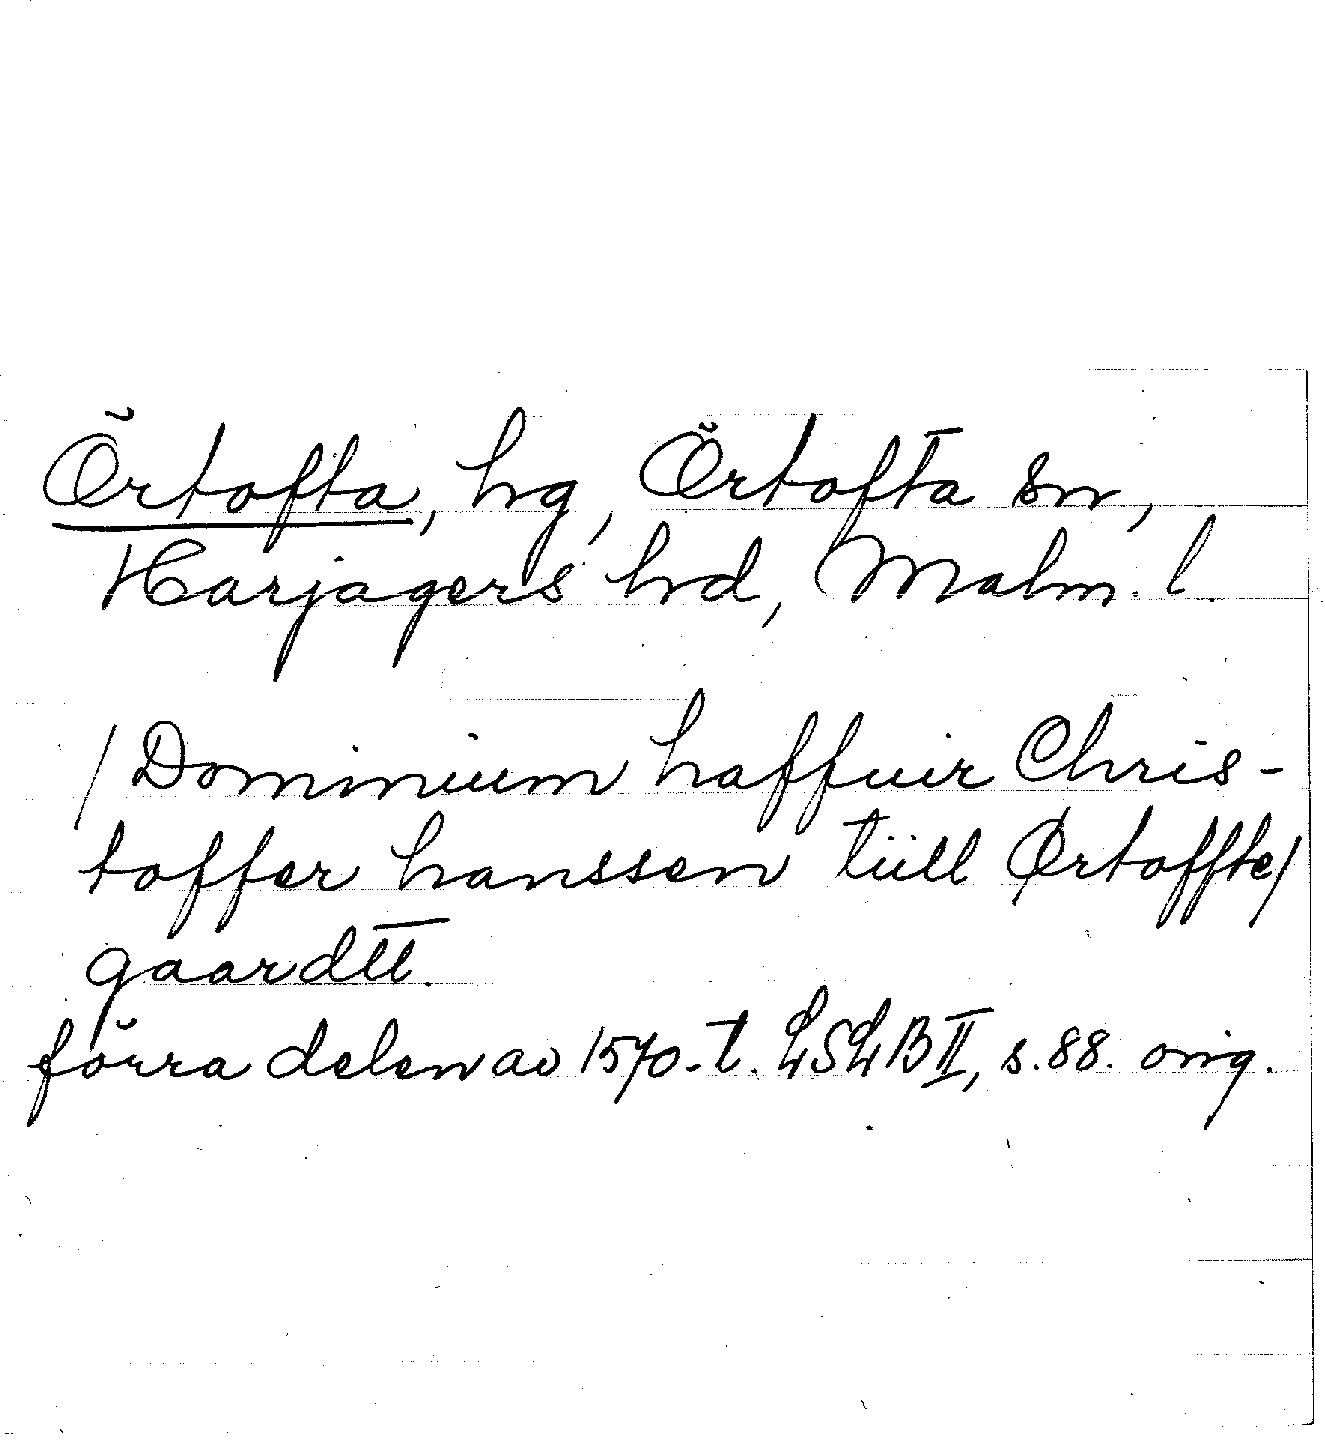 Örtofta, hg, Örtofta sn,
Harjagers hd, Malm. l.
/Dominium haffuir Chris-
toffer hanssen tiill Ørtoffte/
gaardtt.
förra delen av 1570-t. LSLB II, s. 88. orig.